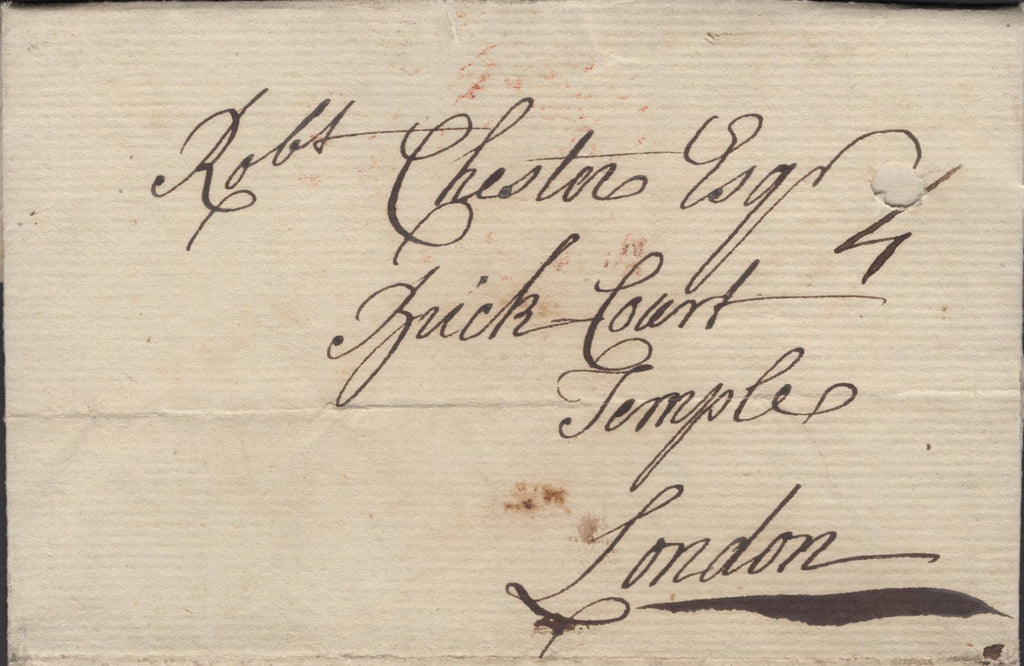 Robt Chester Esqr
Brick Court
Temple
London